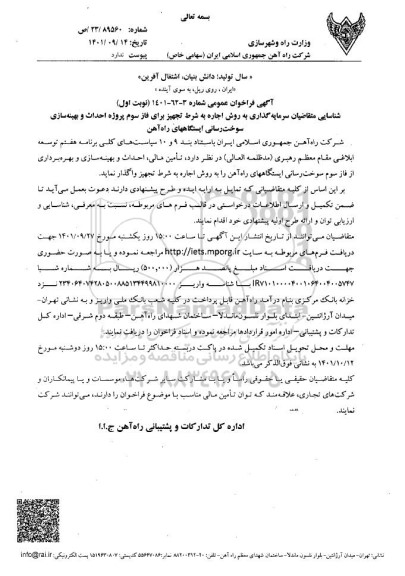 بسمه تعالی
شماره: ۳۳/۸۹۵۶۰/ص
تاریخ: ۱۴۰۱/۰۹/۱۴
پیوست ندارد
وزارت راه وشهرسازی
شرکت راه آهن جمهوری اسلامی ایران (سهامی خاص)
« سال تولید؛ دانش بنیان، اشتغال آفرین»
«ایران ، روی ریل، به سوی آینده »
آگهی فراخوان عمومی شماره ۳-۶۳-۱۴۰۱ (نوبت اول)
شناسایی متقاضیان سرمایه‌گذاری به روش اجاره به شرط تجهیز برای فاز سوم پروژه احداث و بهینه‌سازی
سوخت‌رسانی ایستگاههای راه‌آهن
شرکت راه‌آهن جمهوری اسلامی ایران باستناد بند ۹ و ۱۰ سیاست‌های کلی برنامه هفتم توسعه
ابلاغی مقام معظم رهبری (مدظله‌العالی) در نظر دارد، تأمین مالی، احداث و بهینه‌سازی و بهره‌برداری
از فاز سوم سوخت‌رسانی ایستگاههای راه‌آهن را به روش اجاره به شرط تجهیز واگذار نماید.
بر این اساس از کلیه متقاضیانی که تمایل به ارایه ایده و طرح پیشنهادی دارند دعوت بعمل می‌آید تا
ضمن تکمیل و ارسال اطلاعات درخواستی در قالب فرم های مربوطه، نسبت به معرفی، شناسایی و
ارزیابی توان و ارائه طرح اولیه پیشنهادی خود اقدام نمایند.
متقاضیان می‌توانند از تاریخ انتشار این آگهی تا ساعت ۱۵:۰۰ روز یکشنبه مورخ ۱۴۰۱/۰۹/۲۷ جهت
دریافت فرم‌های مربوطه به سایت http://iets.mporg.ir مراجعه نموده و یا به صورت حضوری
جهت دریافت اسناد مبلغ پانصد هزار (۵۰۰,۰۰۰) ریال به شماره شبا
با شناسه واریز نزد
خزانه بانک مرکزی بنام درآمد راه‌آهن قابل پرداخت در کلیه شعب بانک ملی واریز و به نشانی تهران-
میدان آرژانتین- ابتدای بلوار نلسون‌ماندلا- ساختمان شهدای راه‌آهن- طبقه دوم شرقی- اداره کل
تدارکات و پشتیبانی- اداره امور قراردادها مراجعه نموده و اسناد فراخوان را دریافت نمایند.
مهلت و محل تحویل اسناد تکمیل شده در پاکت دربسته حداکثر تا ساعت ۱۵:۰۰ روز دوشنبه مورخ
۱۴۰۱/۱۰/۱۲ به نشانی فوق‌الذکر می‌باشد.
کلیه متقاضیان حقیقی یا حقوقی رأساً و یا با مشارکت سایر شرکت‌ها، موسسات و یا پیمانکاران و
شرکت‌های تجاری، علاقه‌مند که توان تأمین مالی مناسب با موضوع فراخوان را دارند، می‌توانند شرکت
نمایند.
اداره کل تدارکات و پشتیبانی راه‌آهن ج.ا.ا
نشانی: تهران- میدان آرژانتین- بلوار نلسون ماندلا- ساختمان شهدای معظم راه آهن- پست الکترونیکی: info@rai.ir